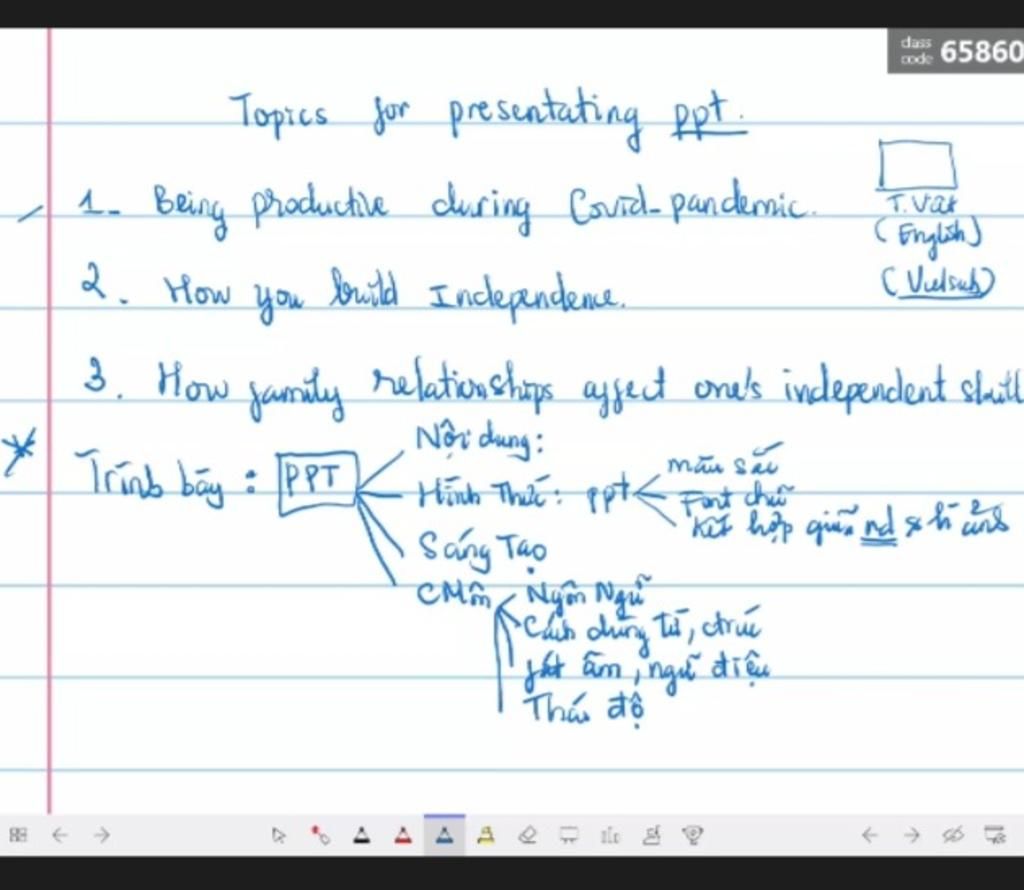 class
code 65860
Topics for presentating ppt.
1- Being productive during Covid-pandemic.
T.Việt
(English)
(Vietsub)
2. How you build Independence.
3. How family relationships affect one's independent skill
* Trình bày : PPT
Nội dung:
Hình Thức: ppt
màu sắc
Font chữ
Kết hợp giữa nd & h ảnh
Sáng Tạo
CMôn
Ngôn Ngữ
Cách dùng từ, ctrúc
phát âm, ngữ điệu
Thái độ